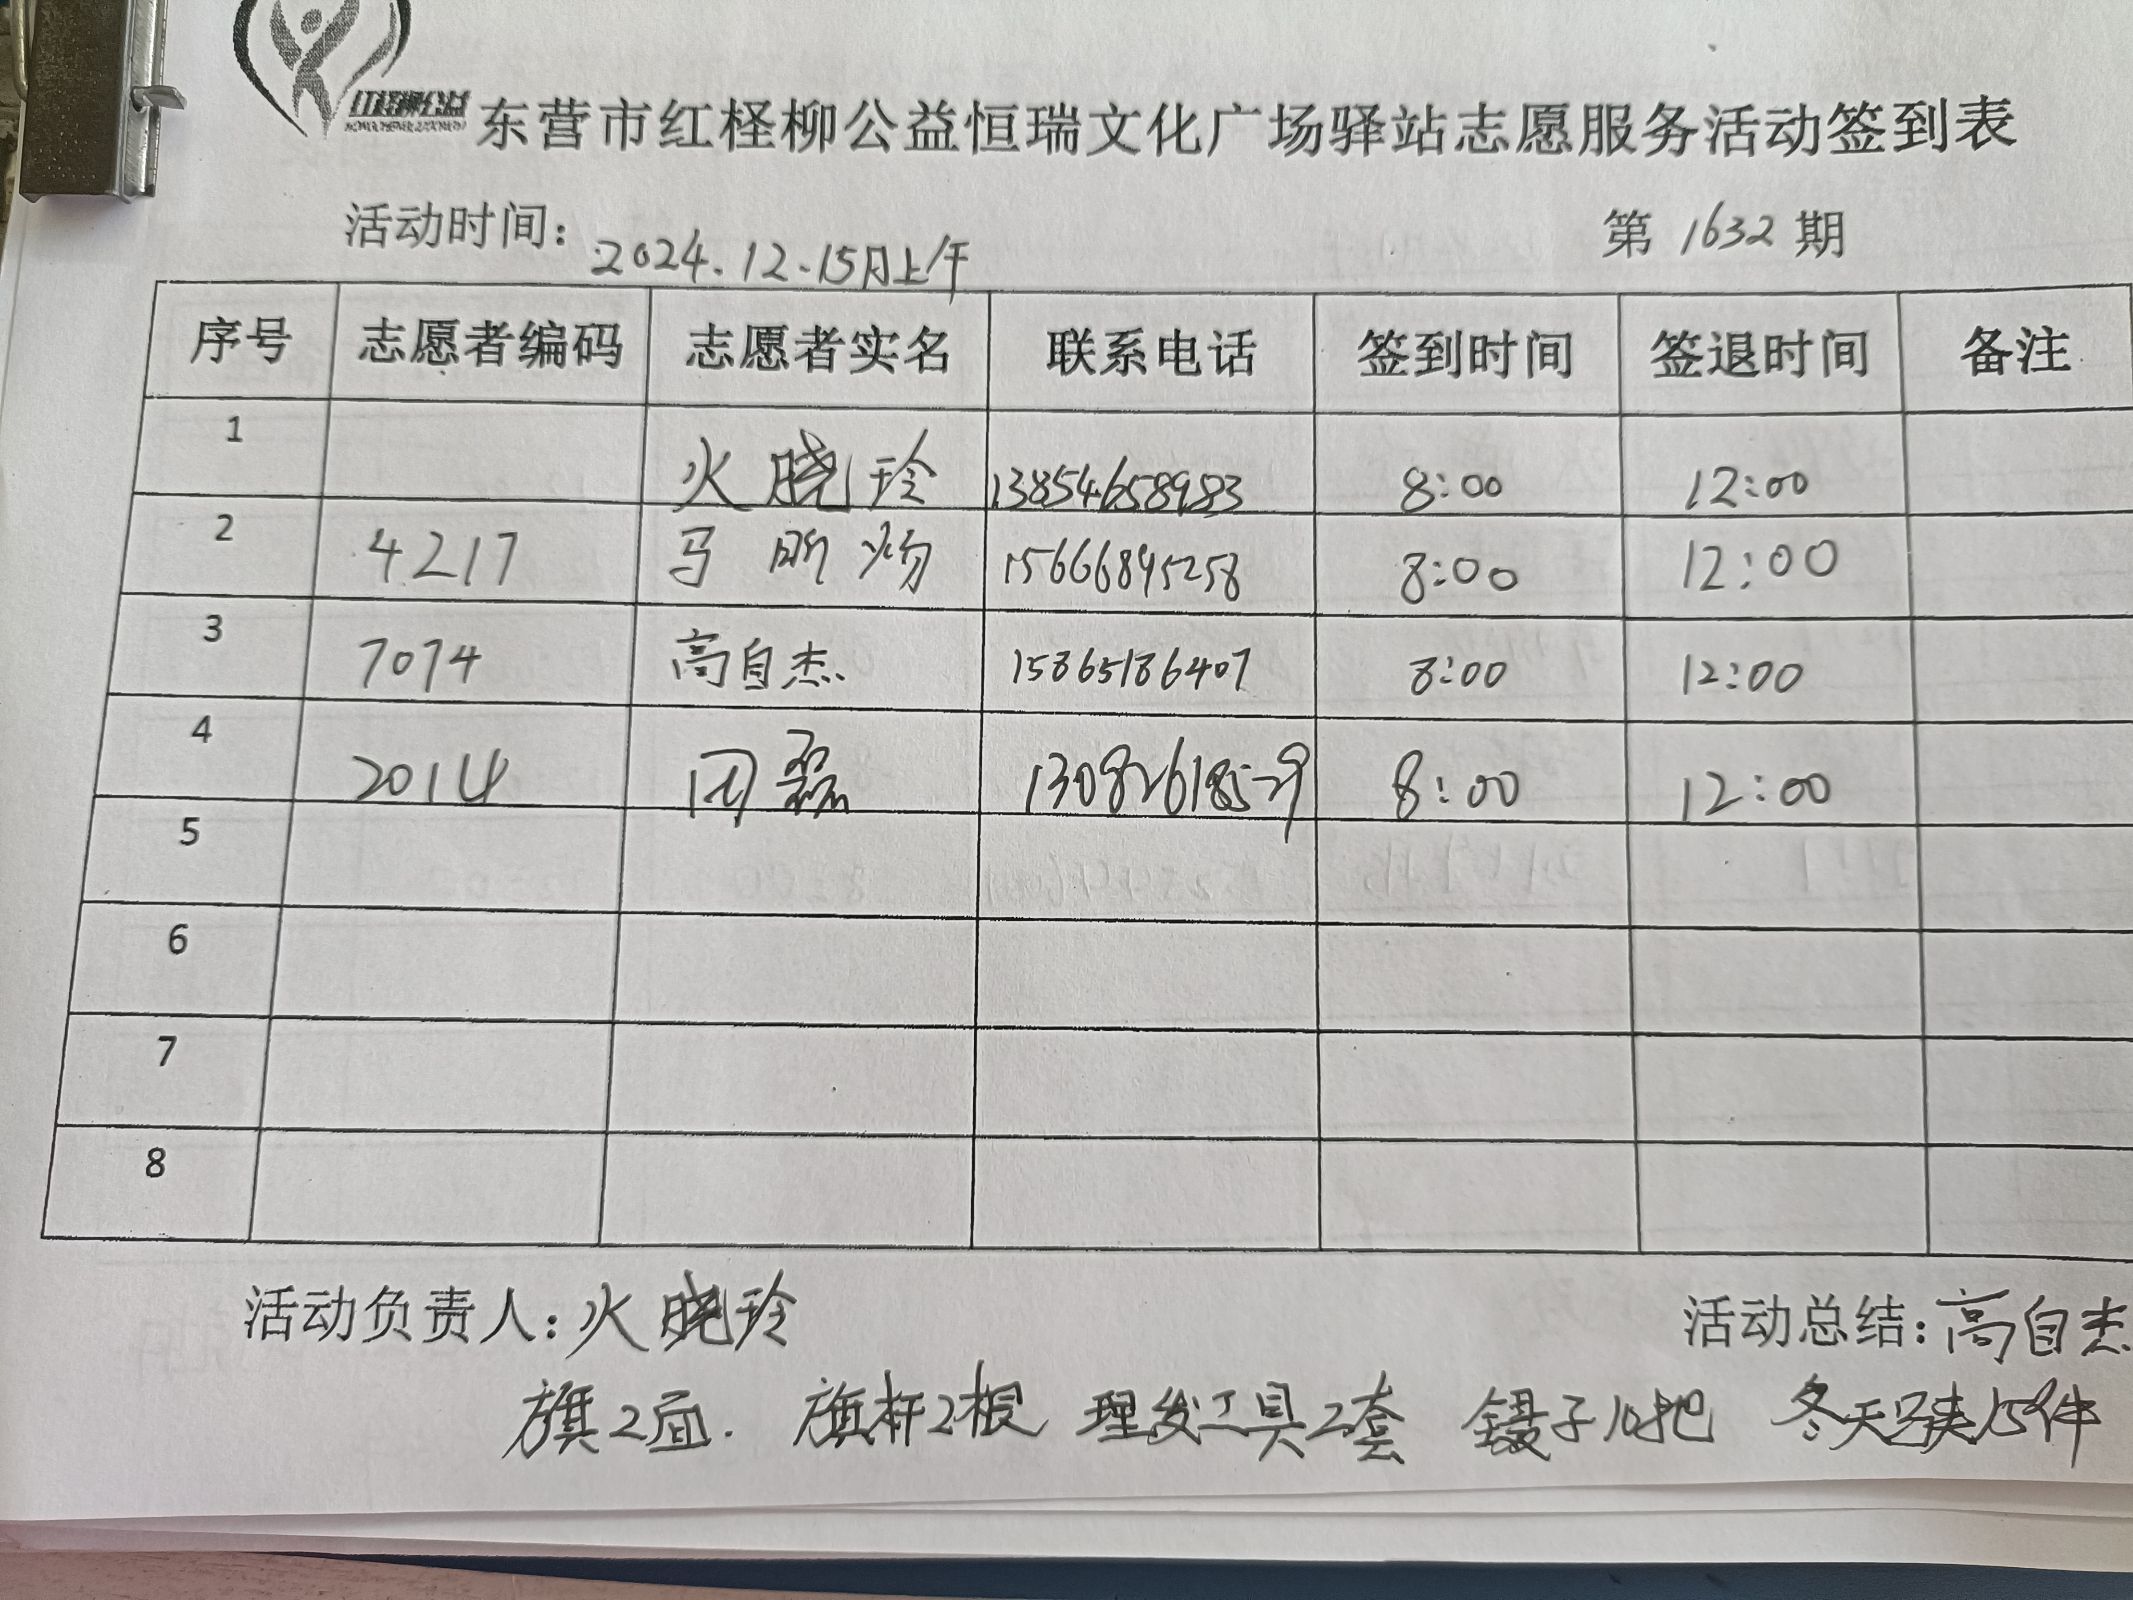 红柽柳公益
东营市红柽柳公益恒瑞文化广场驿站志愿服务活动签到表
活动时间：2024.12.15日上午 第1632期
序号 志愿者编码 志愿者实名 联系电话 签到时间 签退时间 备注
1 火晓玲 13854658983 8:00 12:00
2 4217 马 15666895258 8:00 12:00
3 7074 高自杰 15865186407 8:00 12:00
4 2014 周磊 13082618529 8:00 12:00
5
6
7
8
活动负责人：火晓玲 活动总结：高自杰
旗2面. 旗杆2根 理发工具2套 镊子10把 冬天